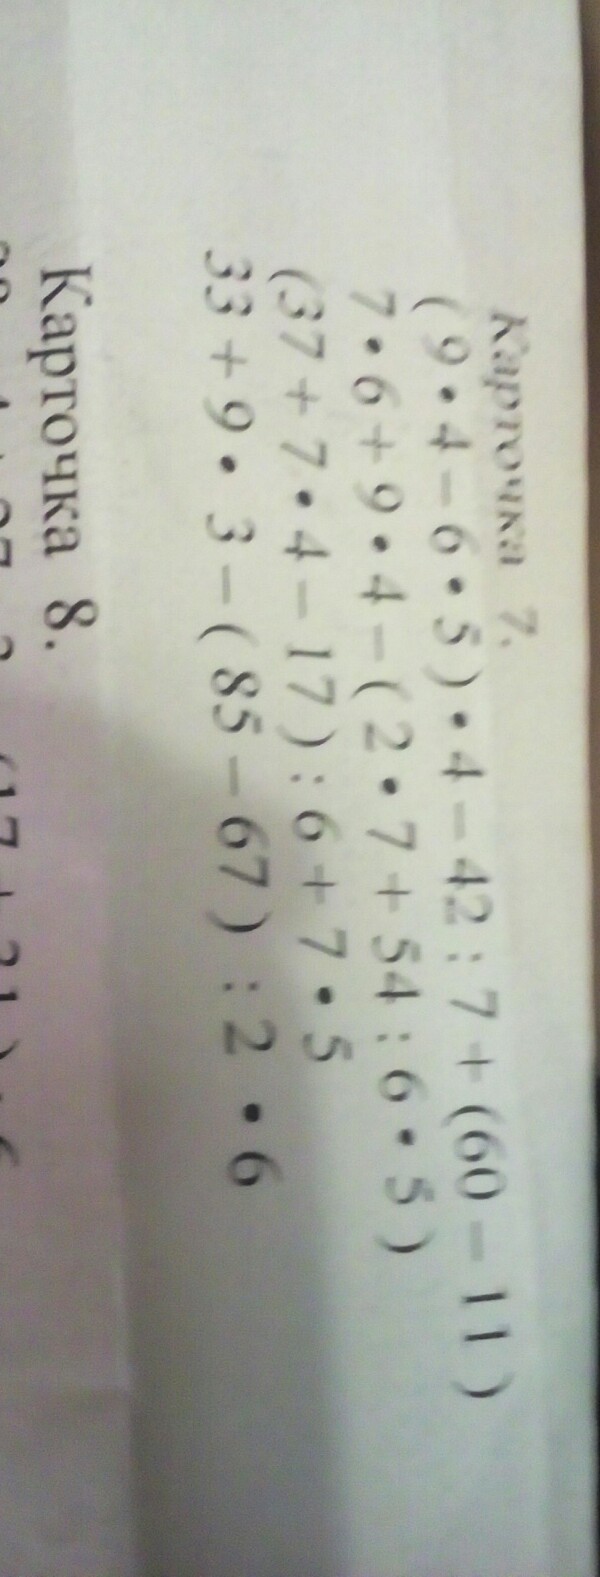 Карточка 7.
( 9 • 4 – 6 • 5 ) • 4 – 42 : 7 + (60 – 11 )
7 • 6 + 9 • 4 – ( 2 • 7 + 54 : 6 • 5 )
(37 + 7 • 4 – 17 ) : 6 + 7 • 5
33 + 9 • 3 – ( 85 – 67 ) : 2 • 6
Карточка 8.